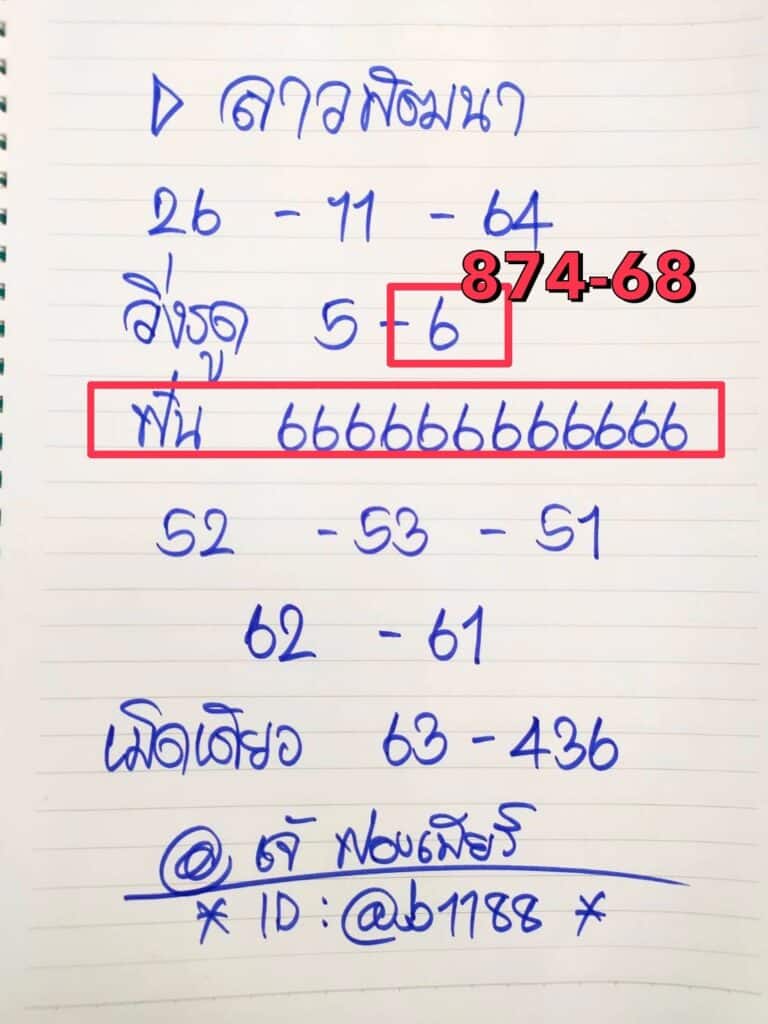 ▷ ลาวพัฒนา
26 - 11 - 64
874-68
วิ่งรูด 5 - 6
ฟัน 6666666666666
52 - 53 - 51
62 - 61
เม็ดเดียว 63 - 436
@ เจ๊ ฟองเบียร์
* ID : @ub1188 *